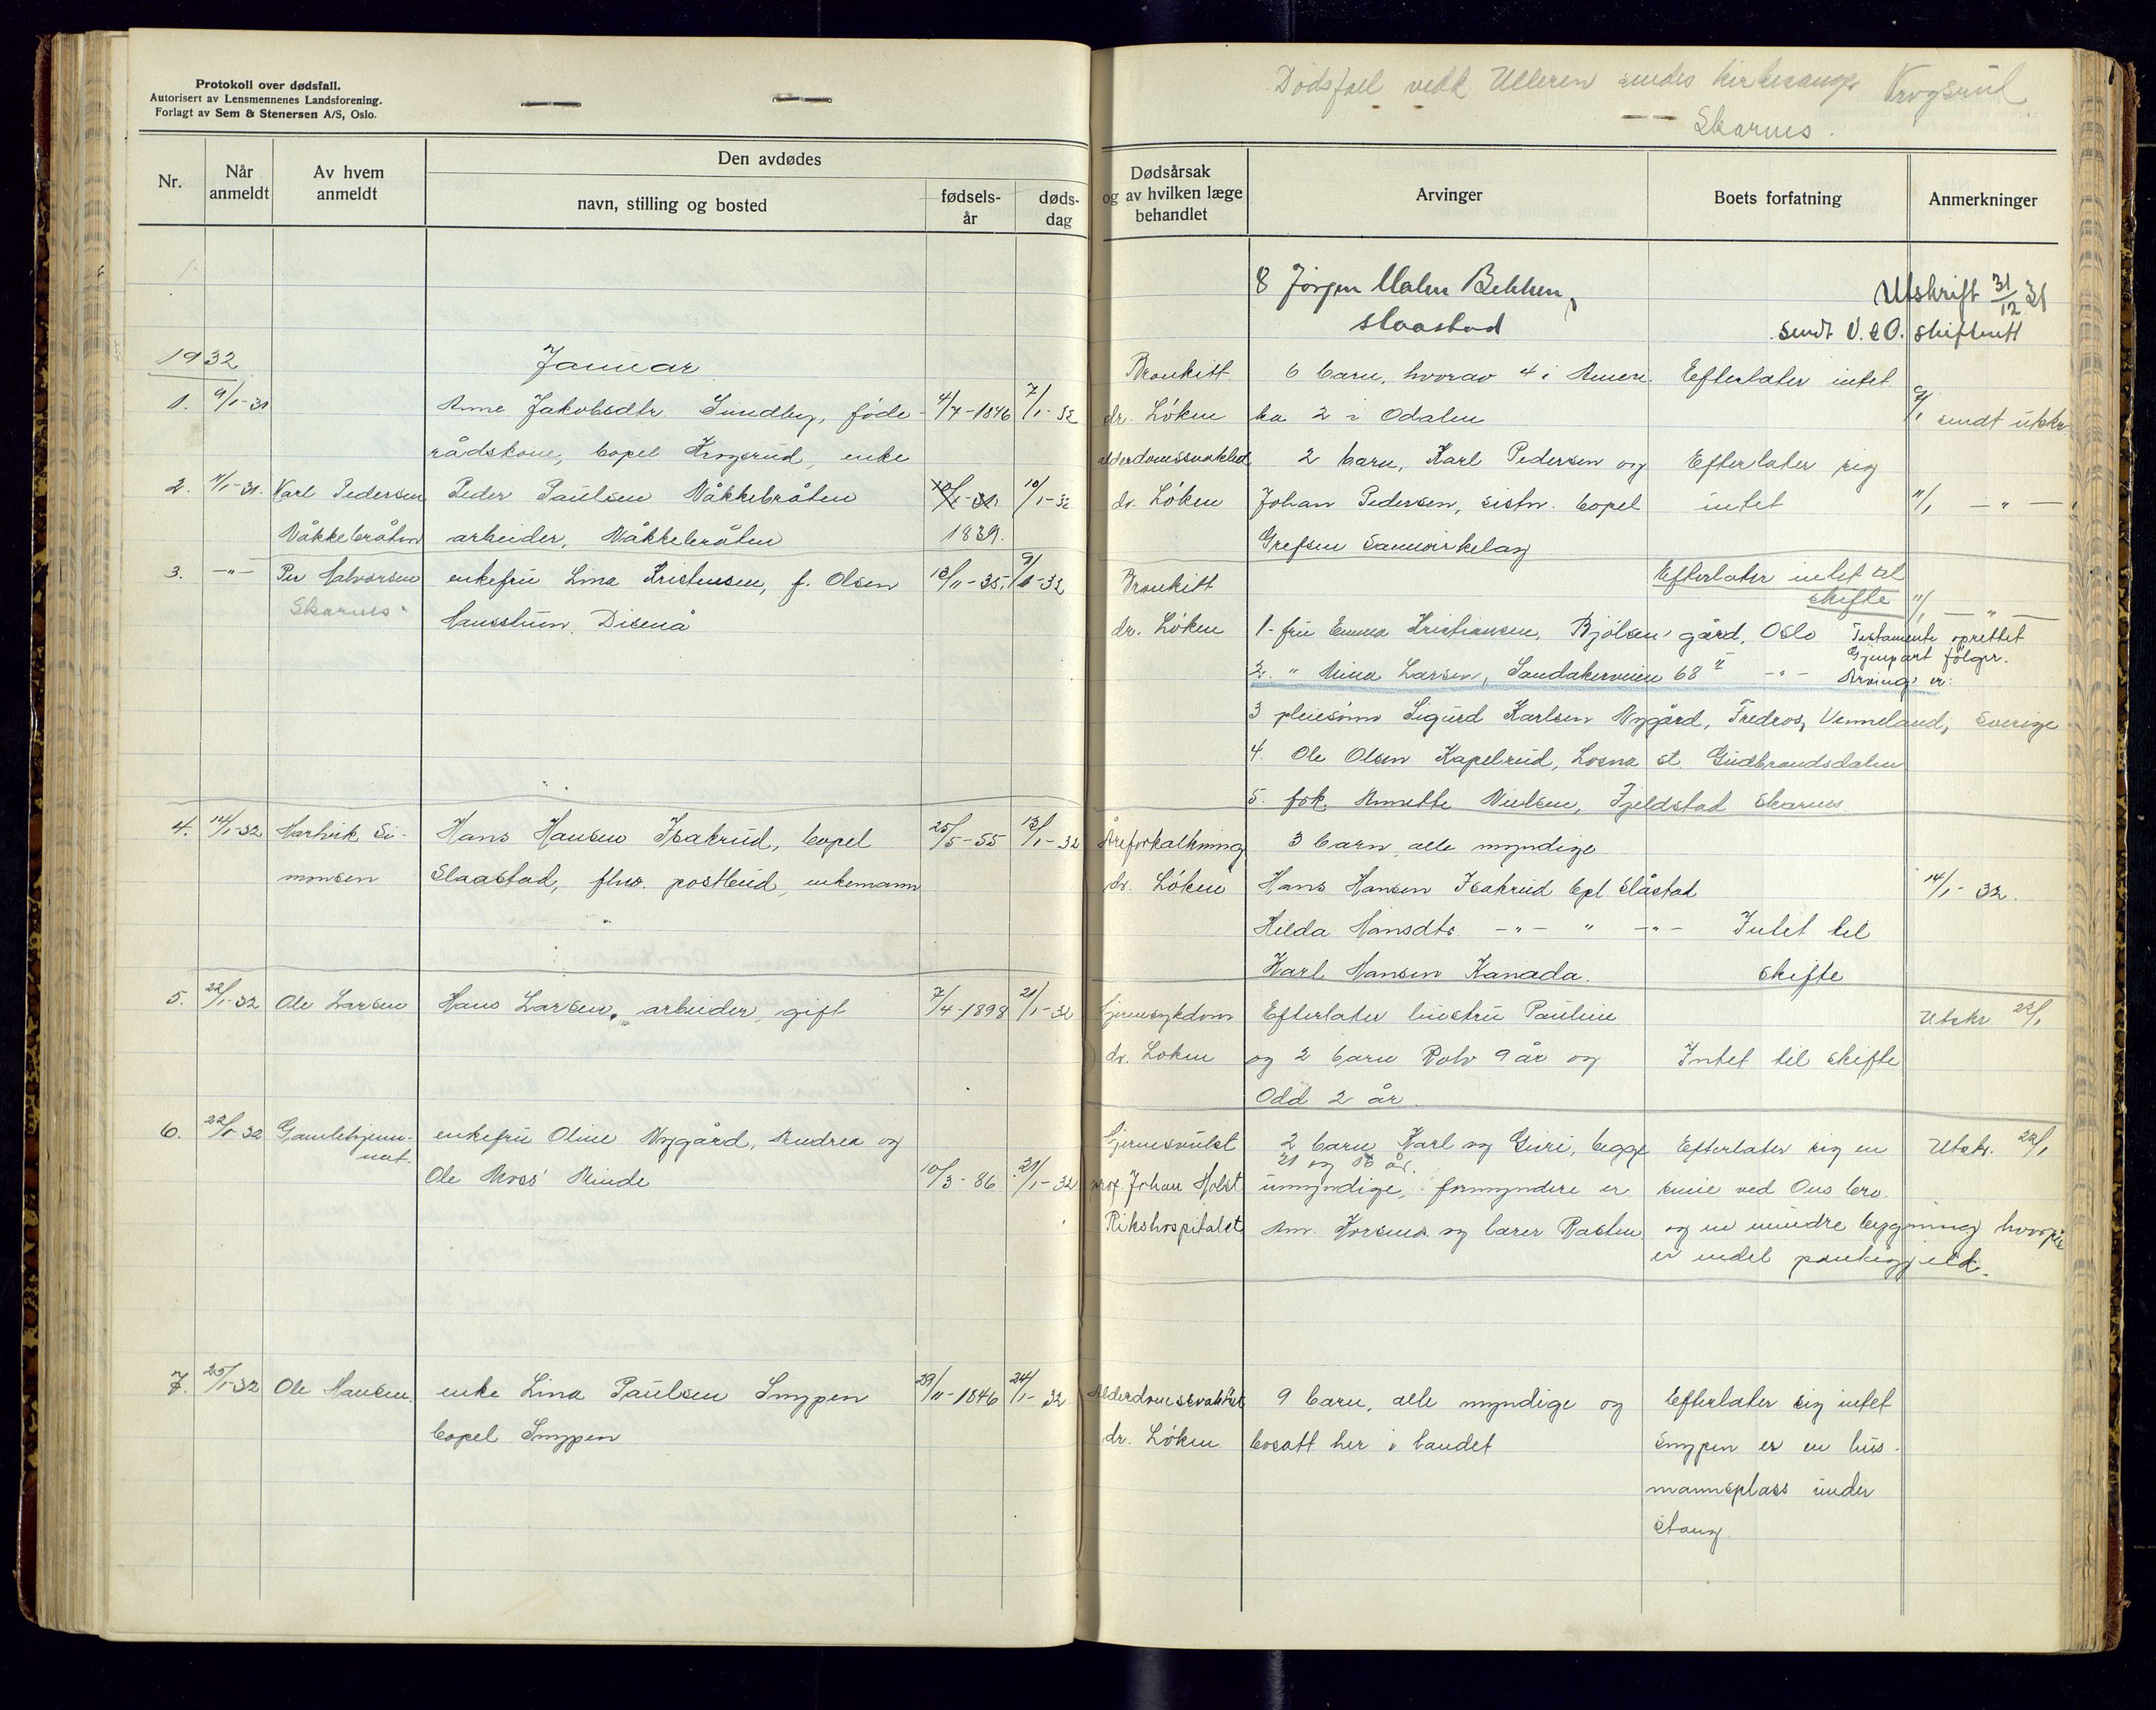 Protokoll over dødsfall.
Autorisert av Lensmennenes Landsforening.
Forlagt av Sem & Stenersen A/S, Oslo.
Nr.
Når anmeldt
Av hvem anmeldt
Den avdødes
navn, stilling og bosted
fødsels-år
døds-dag
1932
Januar
1. 9/1-31 Anne Jakobsdtr Sundby, føde- 4/7-1846 7/1-32
rådskone, bopel Krogsrud, enke
2. 11/1-31. Karl Pedersen Peder Paulsen Våkkebråten 10/1-32
Våkkebråten arbeider, Våkkebråten 1839.
3. -"- Per Halvorsen enkefru Lina Kristensen, f. Olsen 13/11-35. 9/1-32
Skarnes Hansstun, Disenå
4. 14/1-32 Harhik Si- Hans Hansen Isakrud, bopel 25/5-55 13/1-32
monsen Slaastad, fhv. postbud, enkemann
5. 22/1-32 Ole Larsen Hans Larsen, arbeider, gift 7/4-1898 21/1-32
6. 22/1-32 Gamlehjem- enkefru Oline Nygård, Andrea og
met. Ole Moss' Minde 10/3-86 21/1-32
7. 25/1-32 Ole Hansen enke Lina Paulsen Smypen 29/11-1846 24/1-32
bopel Smypen
Dødsfall vedk Ulleren sendes kirkesanger Krogsrud
Skarnes.
Dødsårsak og av hvilken læge behandlet
Arvinger
Boets forfatning
Anmerkninger
8 Jörgen Malm Bekken, Utskrift 31/12 31
Slaastad sendt V. & O. skifterett
Bronkitt. 6 barn, hvorav 4 i Ameri- Efterlater intet
dr. Löken ka 2 i Odalen 9/1 sendt utskr.
alderdomssvakhed 2 barn, Karl Pedersen og Efterlater sig
dr. Löken Johan Pedersen, sistn. bopel intet 11/1 -"-
Grefsen Samvirkelag
Bronkitt Efterlater intet til
skifte 11/1 -"-
dr. Löken 1. fru Emma Kristiansen, Bjölsen gård, Oslo Testamente oprettet
Gjenpart følger.
2. " Mina Larsen, Sandakerveien 68 II -"- Arving. er:
3 pleiesönn Sigurd Karlsen Nygård, Fredros, Vermeland, Sverige
4. Ole Olsen Kapelrud, Losna st. Gudbrandsdalen
5. frk. Annette Nielsen, Fjeldstad Skarnes
Åreforkalkning 3 barn, alle myndige
dr. Löken Hans Hansen Isakrud bpl Slåstad 14/1-32.
Hilda Hansdtr. -"- " -"- Intet til
Karl Hansen Kanada. skifte
Hjernesykdom Efterlater hustru Pauline Utskr 22/1
dr. Loken og 2 barn Rolv 9 år og Intet til skifte
Odd 2 år
Hjernesvulst 2 barn Karl og Guri, begge Efterlater sig en Utskr. 22/1
21 og 16 år.
prof. Johan Holst umyndige, formyndere er smie ved Ous bro
Rikshospitalet Am. Korsmo og lærer Rasten. og en mindre bygning hvorpå
er endel pantegjeld.
Alderdomssvakhet 9 barn, alle myndige og Efterlater sig intet
dr. Löken bosatt her i landet Smypen er en hus-
mannsplass under
Stang